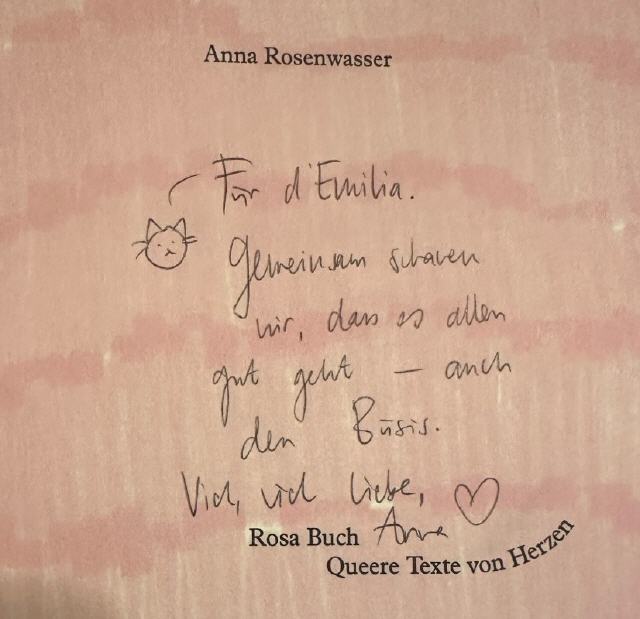 Anna Rosenwasser
Für d'Emilia.
Gemeinsam schauen
wir, dass es allen
gut geht – auch
den Büsis.
Viel, viel Liebe,
Anna
Rosa Buch
Queere Texte von Herzen